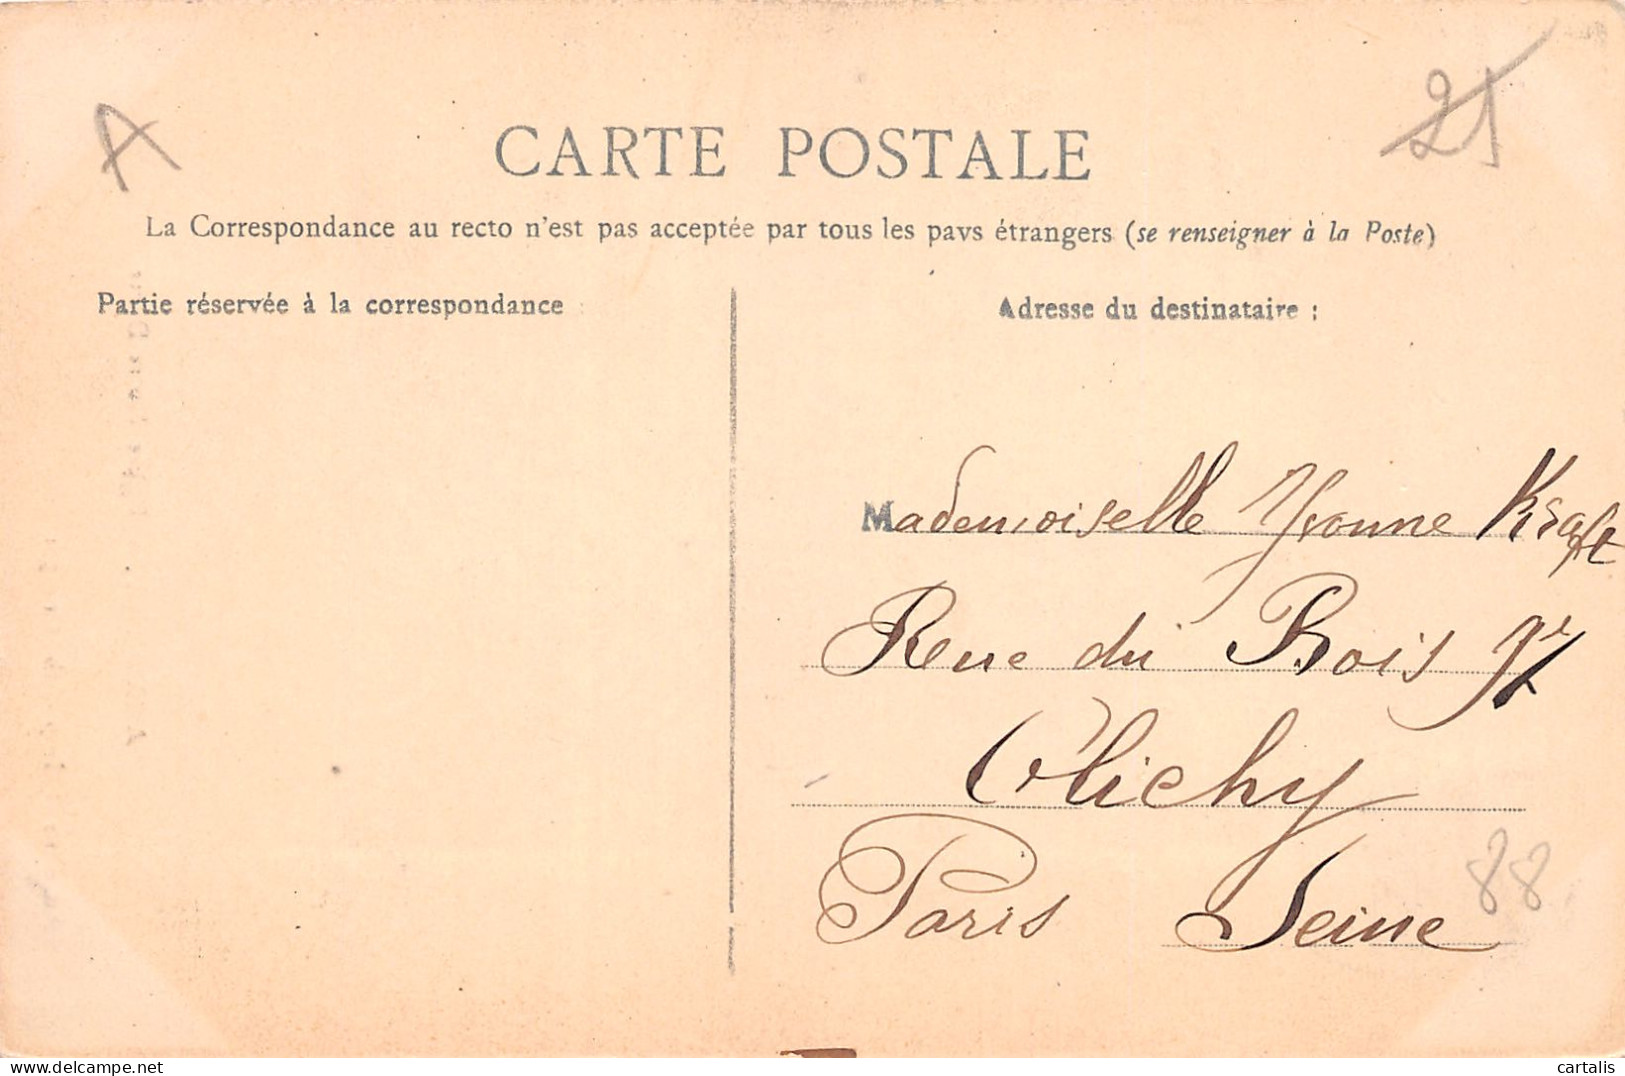 A
21
CARTE POSTALE
La Correspondance au recto n'est pas acceptée par tous les pays étrangers (se renseigner à la Poste)
Partie réservée à la correspondance
Adresse du destinataire :
Mademoiselle Yvonne Kraft
Rue du Bois
Clichy
Paris Seine
88
cartalis
delcampe.net